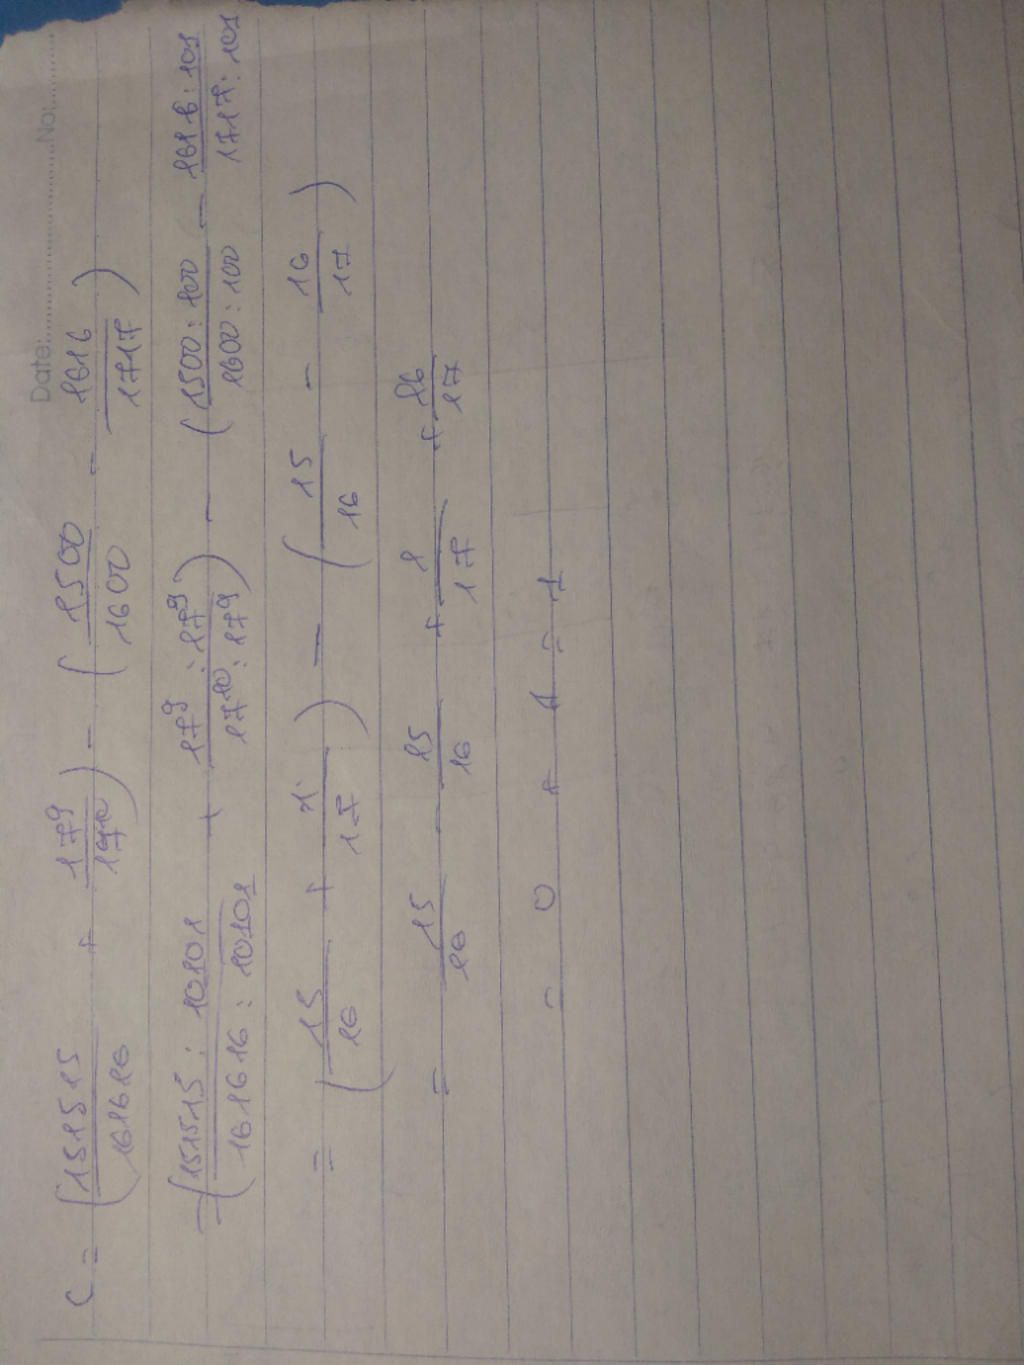 Date:.................No:.........
C = (151515/161616 + 17^9/17^10) - (1500/1600 - 1616/1717)
= (151515 : 10101/161616 : 10101 + 17^9 : 17^9/17^10 : 17^9) - (1500 : 100/1600 : 100 - 1616 : 101/1717 : 101
= (15/16 + 1/17) - (15/16 - 16/17)
= 15/16 - 15/16 + 1/17 + 16/17
= 0 + 1 = 1